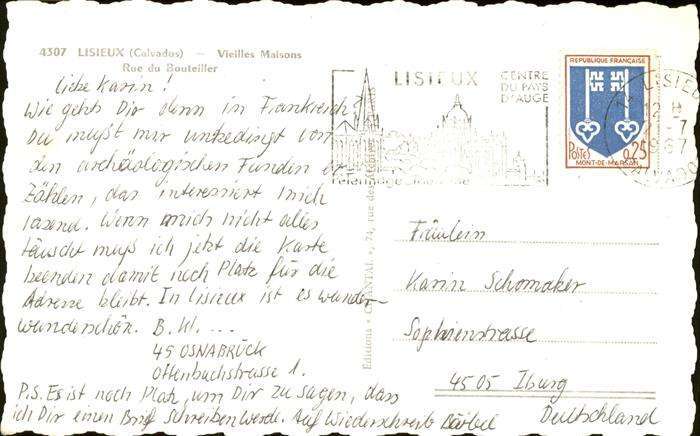 4307 LISIEUX (Calvados) — Vieilles Maisons
Rue du Bouteiller
Liebe Karin!
Wie gehts Dir denn in Frankreich?
Du mußt mir unbedingt von
den archäologischen Funden er-
zählen, das interessiert mich
rasend. Wenn mich nicht alles
täuscht muß ich jetzt die Karte
beenden damit noch Platz für die
Adresse bleibt. In Lisieux ist es wunder-
wunderschön. B. Kl. ...
45 OSNABRÜCK
Ottenbuchstrasse 1.
P.S. Es ist noch Platz, um Dir zu sagen, dass
ich Dir einen Brief schreiben werde. Auf Wiederschreib Bärbel
LISIEUX
CENTRE
DU PAYS
D'AUGE
REPUBLIQUE FRANÇAISE
POSTES 0,25
MONT-DE-MARSAN
LISIEUX
12 H
-7
1967
CALVADOS
Editions « CHANTAL », 74, rue des
Fräulein
Karin Schomaker
Sophienstrasse
4505 Iburg
Deutschland